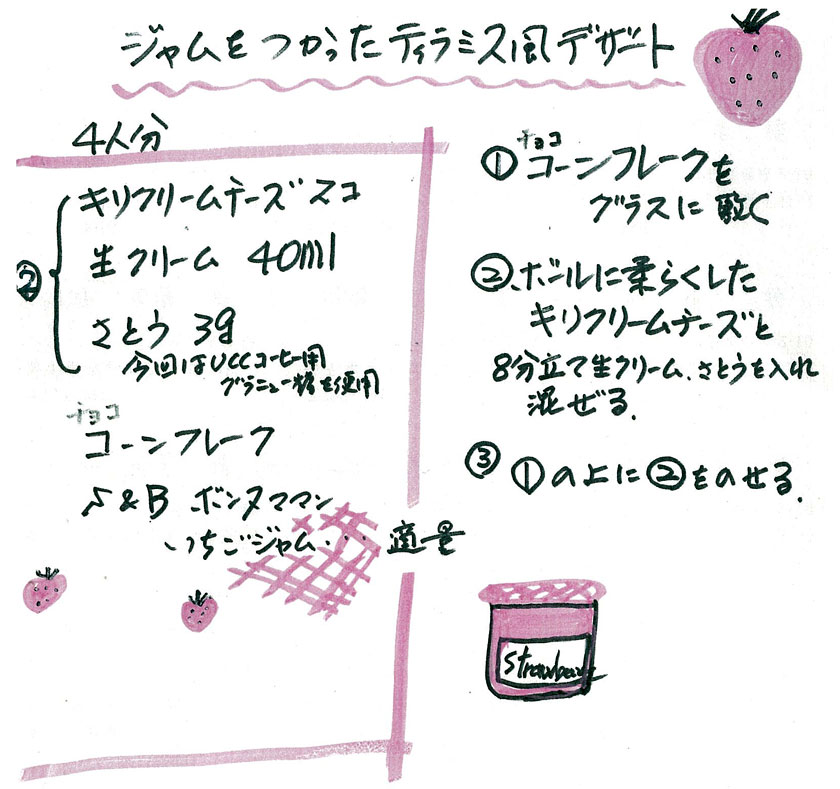 ジャムをつかったティラミス風デザート
4人分
② キリクリームチーズ 2コ
生クリーム 40ml
さとう 3g
今回はUCCコーヒー用
グラニュー糖を使用
チョコ
コーンフレーク
S&B ボンヌママン
いちごジャム・・・適量
チョコ
①コーンフレークを
グラスに敷く
②ボールに柔らくした
キリクリームチーズと
8分立て生クリーム、さとうを入れ
混ぜる.
③ ①の上に②をのせる.
Strawberry